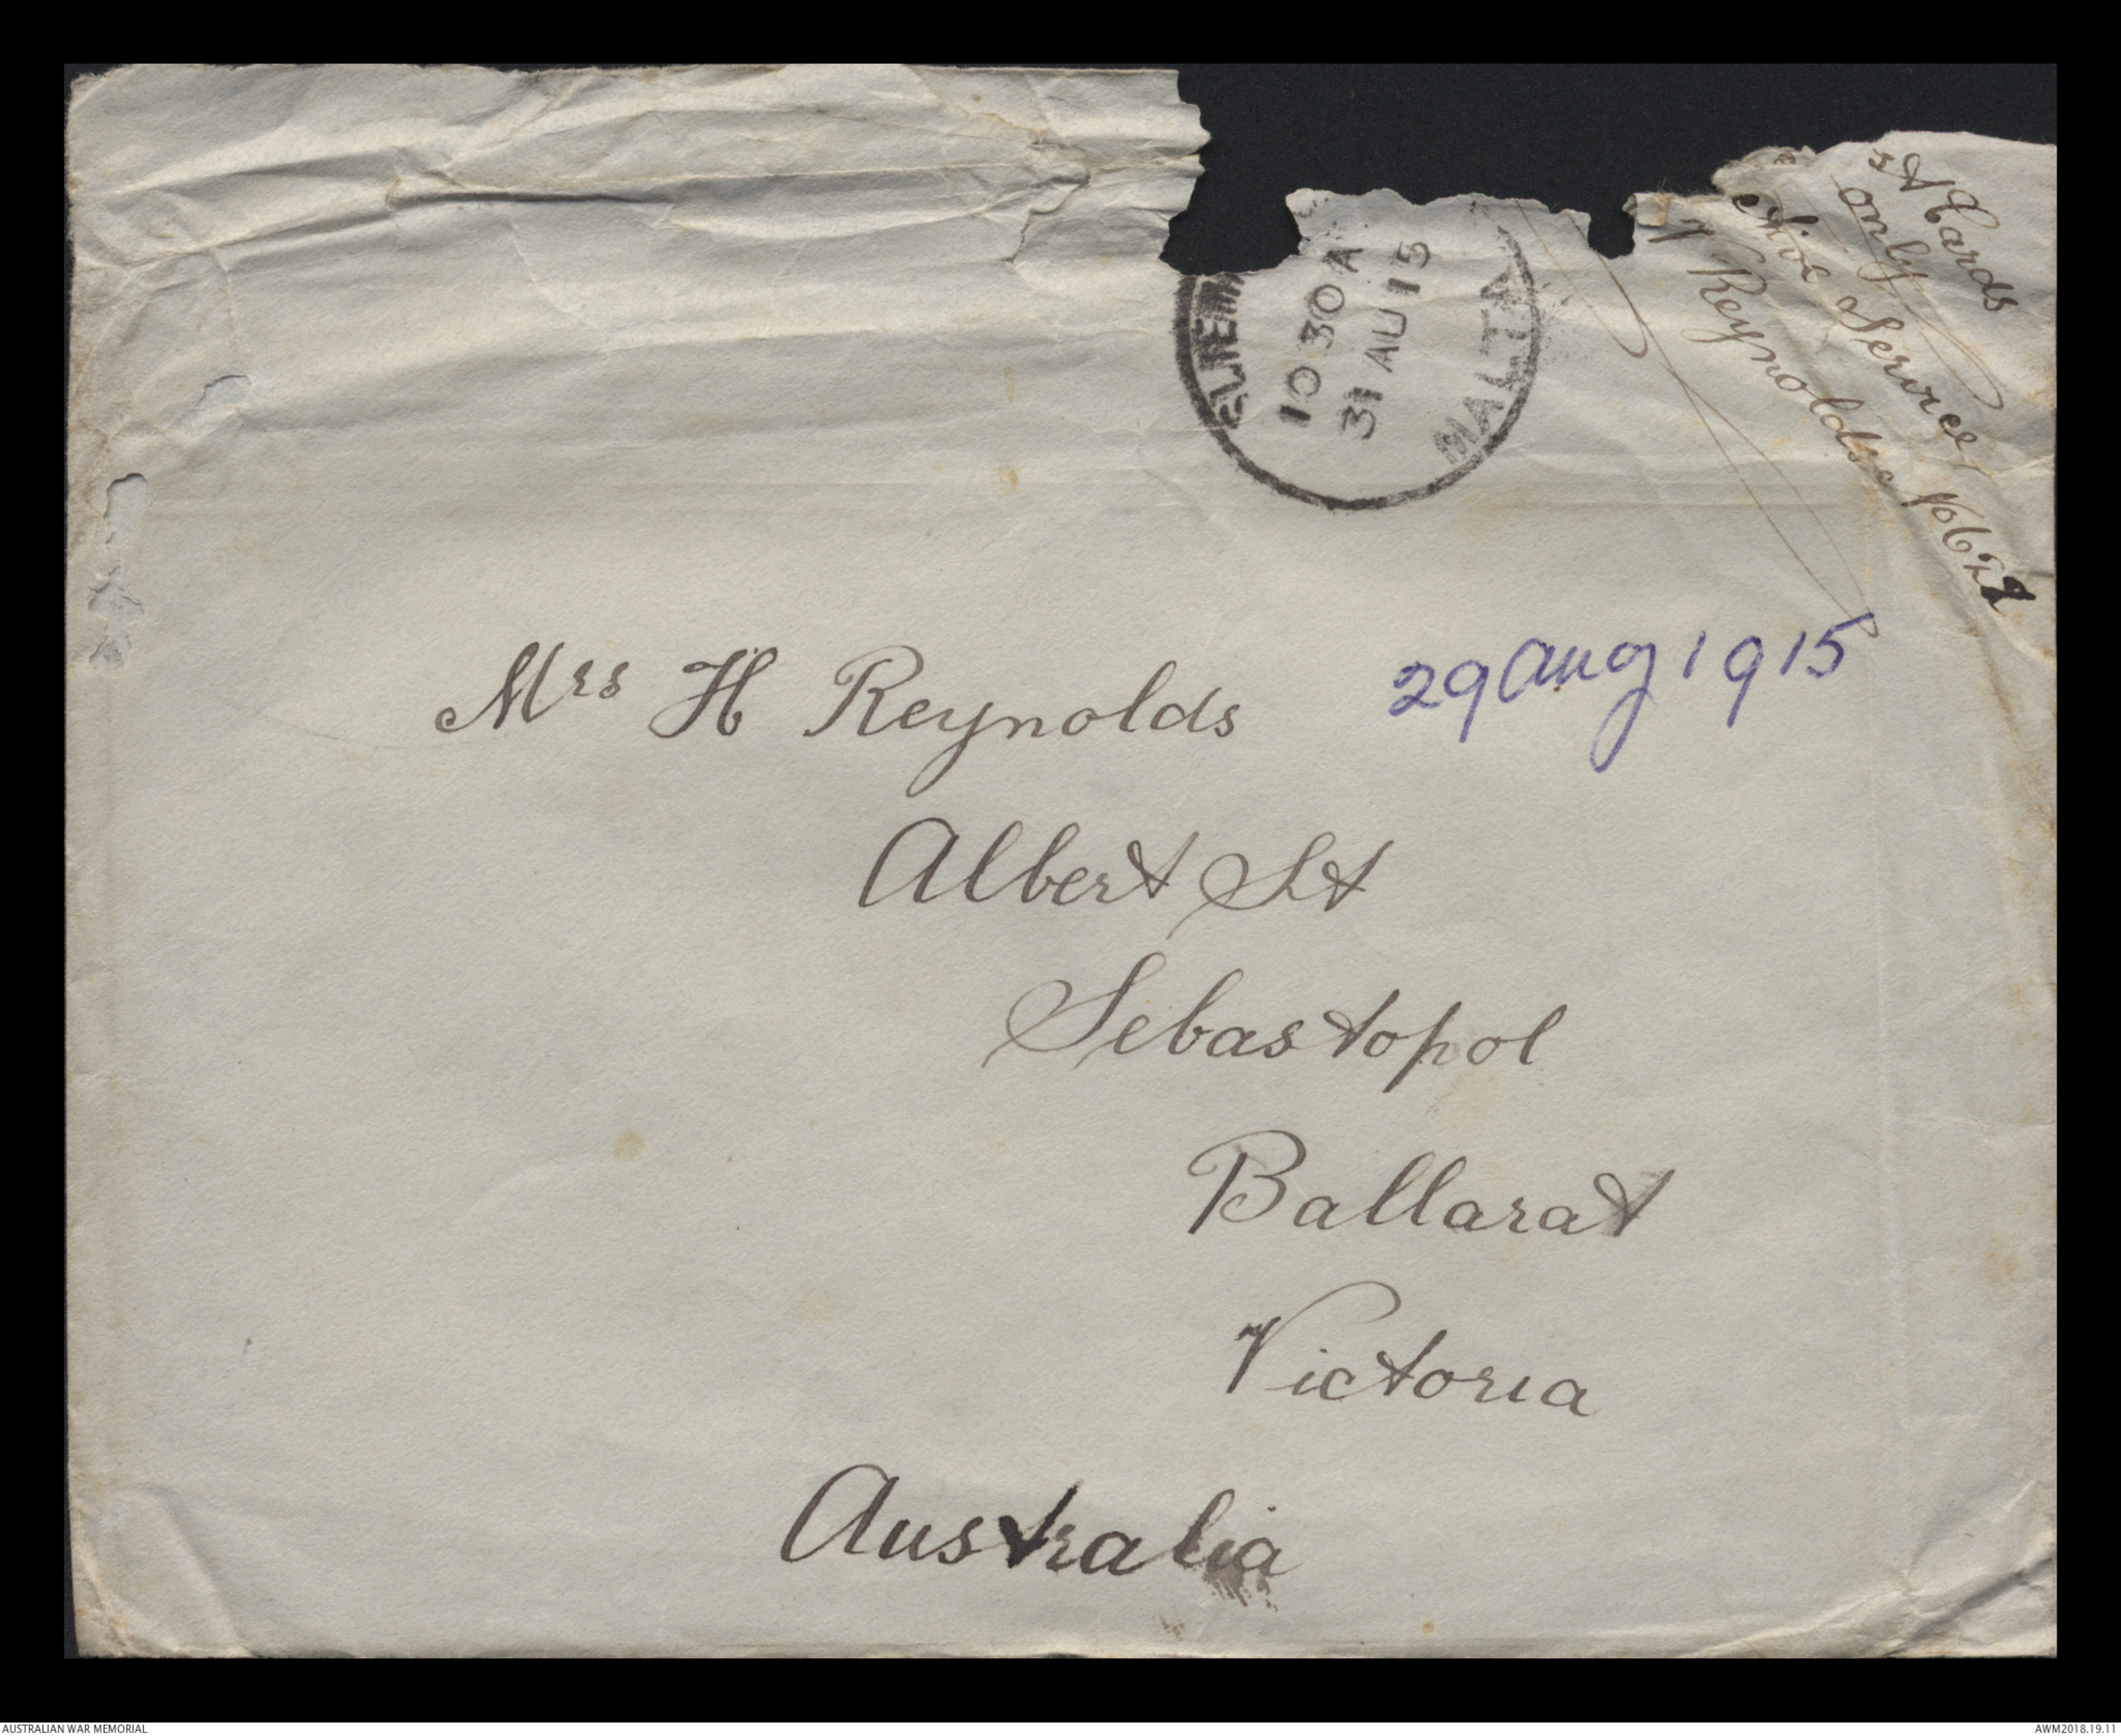 Cards
only
Service
Reynolds No 622
10 30 A
31 AU 15
MALTA
29 Aug 1915
Mrs H Reynolds
Albert St
Sebastopol
Ballarat
Victoria
Australia
AUSTRALIAN WAR MEMORIAL
AWM2018.19.11